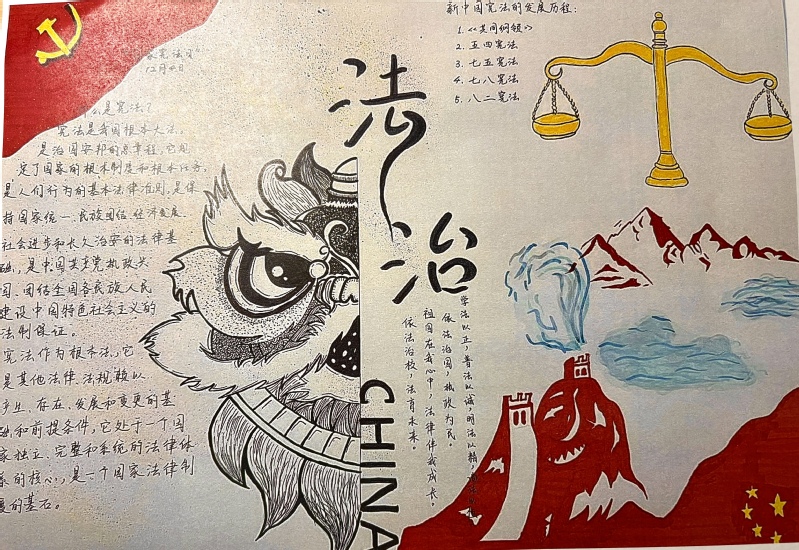 家宪法日"
12月4日
什么是宪法?
宪法是我国根本大法,
是治国安邦的总章程,它规
定了国家的根本制度和根本任务,
是人们行为的基本法律准则,是保
持国家统一、民族团结、经济发展、
社会进步和长久治安的法律基
础,是中国共产党执政兴
国、团结全国各民族人民
建设中国特色社会主义的
法制保证。
宪法作为根本法,它
是其他法律、法规赖以
产生、存在、发展和变更的基
础和前提条件,它处于一个国
家独立、完整和系统的法律体
系的核心,是一个国家法律制
度的基石。
法治
CHINA
新中国宪法的发展历程:
1.《共同纲领》
2. 五四宪法
3. 七五宪法
4. 七八宪法
5. 八二宪法
学法以正,普法以诚,明法以精,
依法治国,执政为民。
祖国在我心中,法律伴我成长。
依法治校,法育未来。